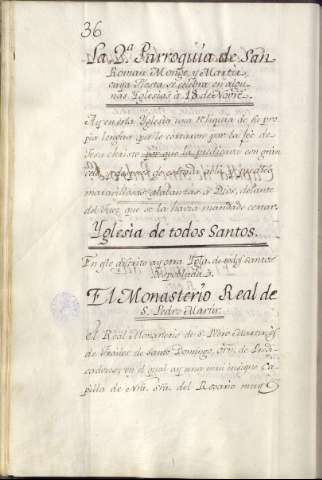 36
La Rª. Parroquia de San
Roman Monge, y Martir
cuya fiesta se celebra en algu-
nas Yglesias à 18 de Novre.
Ay en esta Yglesia una reliquia de su pro-
pia lengua, que le cortaron por la feé de
Jesu christo por que la predicava con gran
maravillosas alabanzas à Dios, delante
del Juez que se la havia mandado cortar.
Yglesia de todos Santos.
En este distrito ay otra Ygla. de todos santos
despoblada.
El Monasterio Real de
S. Pedro Martir.
El Real Monasterio de S. Pedro Martir, es
de frailes de Santo Domingo, orn. de Pre-
cadores, en el qual ay una mui insigne ca-
pilla de Nra. Sra. del Rosario muy